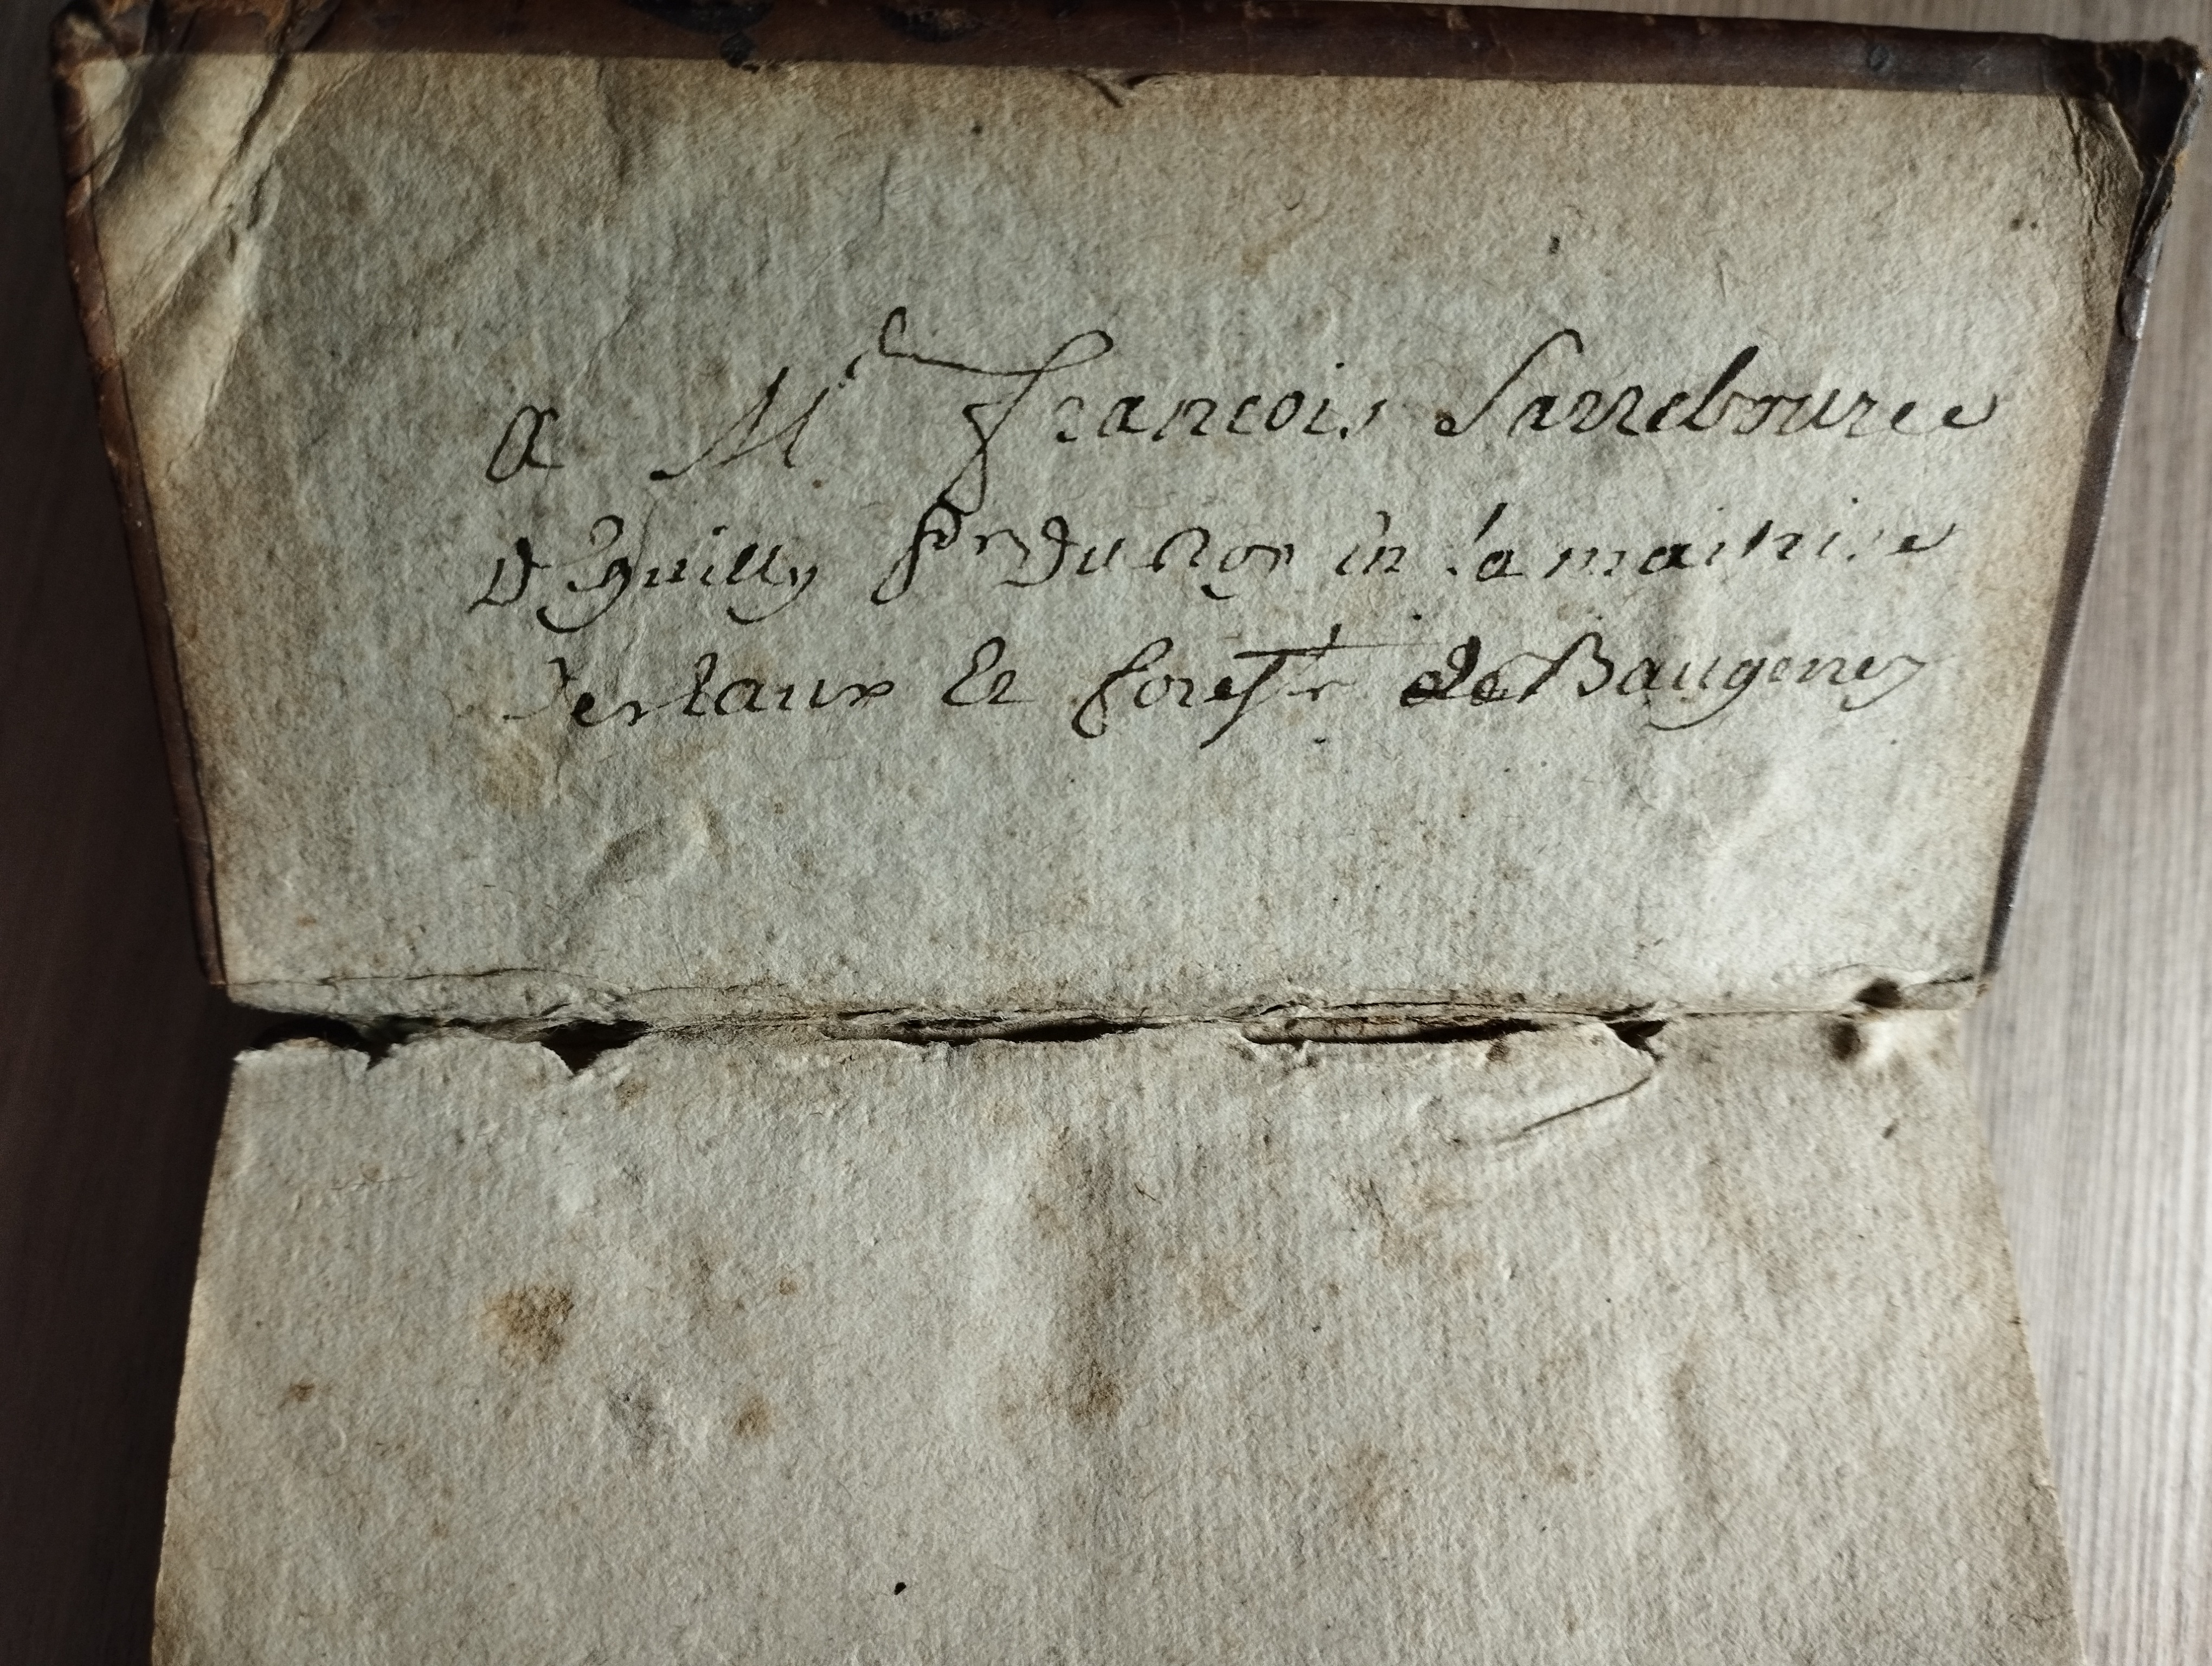 a Mr francois Sarrebource
D Eguilly pr du Roy en la maitrise
des Eaux Et forests de Baugency